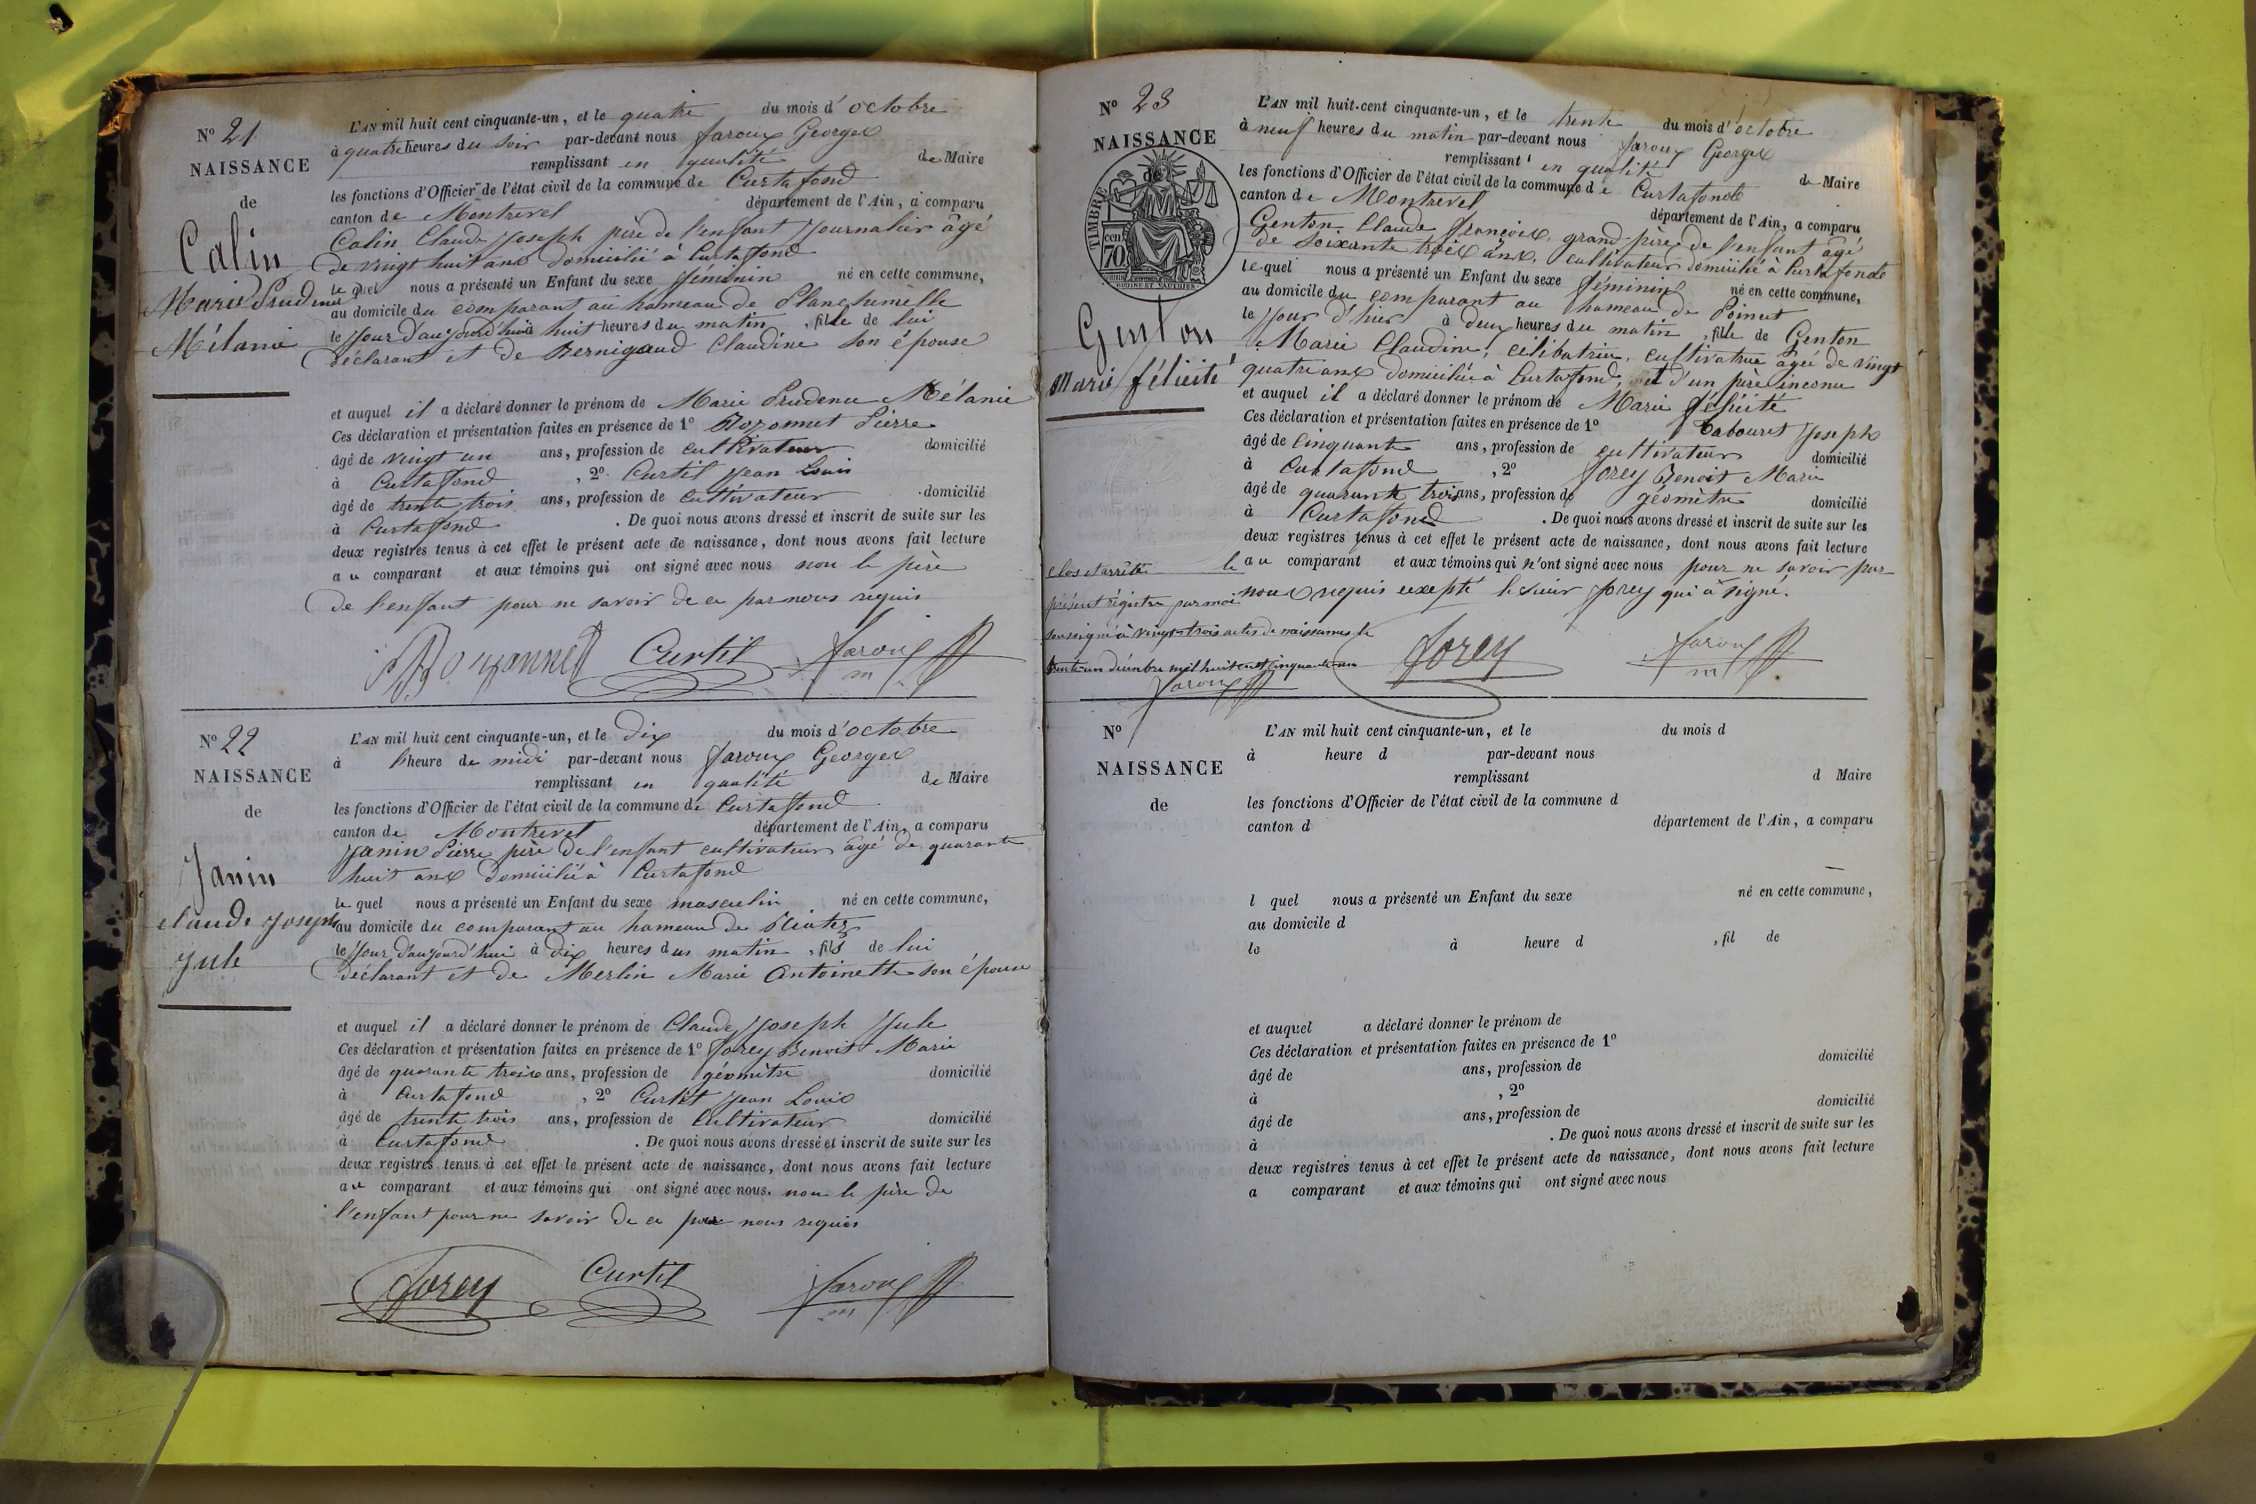 N° 21
NAISSANCE
de
Calin
Marie Prudence
Mélanie
L'AN mil huit cent cinquante-un, et le quatre du mois d'octobre
à quatre heures du soir par-devant nous Jaroux Georges
remplissant en qualité de Maire
les fonctions d'Officier de l'état civil de la commune de Curtafond
canton de Montrevel département de l'Ain, a comparu
Calin Claude Joseph père de l'enfant journalier âgé
de vingt huit ans domicilié à Curtafond
le quel nous a présenté un Enfant du sexe féminin né en cette commune,
au domicile du comparant au hameau de
le jour d'aujourd'hui à huit heures du matin, fille de lui
déclarant et de Bernigaud Claudine son épouse
et auquel il a déclaré donner le prénom de Marie Prudence Mélanie
Ces déclaration et présentation faites en présence de 1° Pierre
âgé de vingt un ans, profession de cultivateur domicilié
à Curtafond, 2° Curtil Jean Louis
âgé de trente trois ans, profession de cultivateur domicilié
à Curtafond. De quoi nous avons dressé et inscrit de suite sur les
deux registres tenus à cet effet le présent acte de naissance, dont nous avons fait lecture
au comparant et aux témoins qui ont signé avec nous non le père
de l'enfant pour ne savoir de ce par nous requis
Curtil Jaroux
m
N° 22
NAISSANCE
de
Janin
Claude Joseph
Jule
L'AN mil huit cent cinquante-un, et le dix du mois d'octobre
à l'heure de midi par-devant nous Jaroux Georges
remplissant en qualité de Maire
les fonctions d'Officier de l'état civil de la commune de Curtafond
canton de Montrevel département de l'Ain, a comparu
Janin Pierre père de l'enfant cultivateur âgé de quarante
huit ans domicilié à Curtafond
le quel nous a présenté un Enfant du sexe masculin né en cette commune,
au domicile du comparant au hameau de
le jour d'aujourd'hui à dix heures du matin, fils de lui
déclarant et de Merlin Marie Antoinette son épouse
et auquel il a déclaré donner le prénom de Claude Joseph Jule
Ces déclaration et présentation faites en présence de 1° Jorey Benoit Marie
âgé de quarante trois ans, profession de géomètre domicilié
à Curtafond, 2° Curtil Jean Louis
âgé de trente trois ans, profession de cultivateur domicilié
à Curtafond. De quoi nous avons dressé et inscrit de suite sur les
deux registres tenus à cet effet le présent acte de naissance, dont nous avons fait lecture
au comparant et aux témoins qui ont signé avec nous. non le père de
l'enfant pour ne savoir de ce par nous requis
Jorey Curtil Jaroux
m
N° 23
NAISSANCE
TIMBRE
cen
70
Genton
Marie félicité
L'AN mil huit-cent cinquante-un, et le trente du mois d'octobre
à neuf heures du matin par-devant nous Jaroux Georges
remplissant en qualité de Maire
les fonctions d'Officier de l'état civil de la commune de Curtafond
canton de Montrevel département de l'Ain, a comparu
Genton Claude françois, grand-père de l'enfant âgé
de soixante trois ans, cultivateur domicilié à Curtafond
le quel nous a présenté un Enfant du sexe féminin né en cette commune,
au domicile du comparant au hameau de
le jour d'hier à deux heures du matin, fille de Genton
Marie Claudine, célibataire, cultivatrice âgée de vingt
quatre ans domiciliée à Curtafond, et d'un père inconnu
et auquel il a déclaré donner le prénom de Marie félicité
Ces déclaration et présentation faites en présence de 1° Tabouret Joseph
âgé de cinquante ans, profession de cultivateur domicilié
à Curtafond, 2° Jorey Benoit Marie
âgé de quarante trois ans, profession de géomètre domicilié
à Curtafond. De quoi nous avons dressé et inscrit de suite sur les
deux registres tenus à cet effet le présent acte de naissance, dont nous avons fait lecture
au comparant et aux témoins qui n'ont signé avec nous pour ne savoir par
nous requis excepté le sieur Jorey qui a signé.
clos et arrêté le
présent régistre par moi
soussigné à vingt-trois actes de naissances le
trente-un décembre mil huit cent cinquante-un
Jaroux
Jorey Jaroux
m
N°
NAISSANCE
de
L'AN mil huit cent cinquante-un, et le du mois d
à heure d par-devant nous
remplissant d Maire
les fonctions d'Officier de l'état civil de la commune d
canton d département de l'Ain, a comparu
l quel nous a présenté un Enfant du sexe né en cette commune,
au domicile d
le à heure d , fil de
et auquel a déclaré donner le prénom de
Ces déclaration et présentation faites en présence de 1°
âgé de ans, profession de domicilié
à , 2°
âgé de ans, profession de domicilié
à . De quoi nous avons dressé et inscrit de suite sur les
deux registres tenus à cet effet le présent acte de naissance, dont nous avons fait lecture
a comparant et aux témoins qui ont signé avec nous